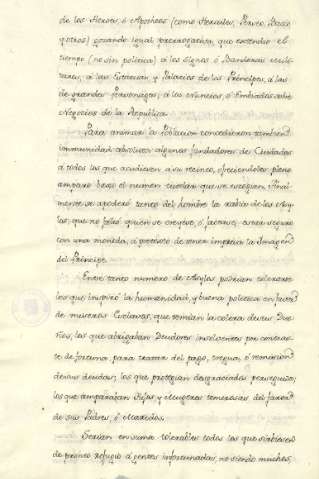 de los Heroes, ó Apotheos (como Hercules, Perseo, Baco,
y otros) gozando igual prerrogativa, que extendio el
tiempo (no sin politica) á los signos, ó Banderas mili-
tares, á las Estatuas, y Palacios de los Principes, á las
de grandes Personages, á los Nuncios, ó Embiados sobre
Negocios de la Republica.
Para animar la Poblacion concedieron tambien
immunidad absoluta algunos fundadores de Ciudades
á todos los que acudiesen á su recinto, ofreciendoles pleno
amparo bajo el numen tutelar que se escogian. Final-
mente se apoderó tanto del hombre la radio de los Asy-
los, que no faltó quien se creyese, ó jactase, estar seguro
con una moneda, á pretexto de tener impresa la Imagen
del Principe.
Entre tanto numero de Asylos pudieron tolerarse
los que inspiró la humanidad, y buena politica en favor
de miseros Esclavos, que temian la colera de sus Due-
ños, los que abrigaban Deudores insolventes por contras-
te de fortuna para tratar del pago, tregua, ó remision
de sus deudas; los que protegian desgraciados perseguidos;
los que amparaban Hijos, y Mugeres temerosas del furor
de sus Padres, ó Maridos.
Serian en suma tolerables todos los que sirviesen
de franco refugio á gentes infortunadas, no siendo muchos,